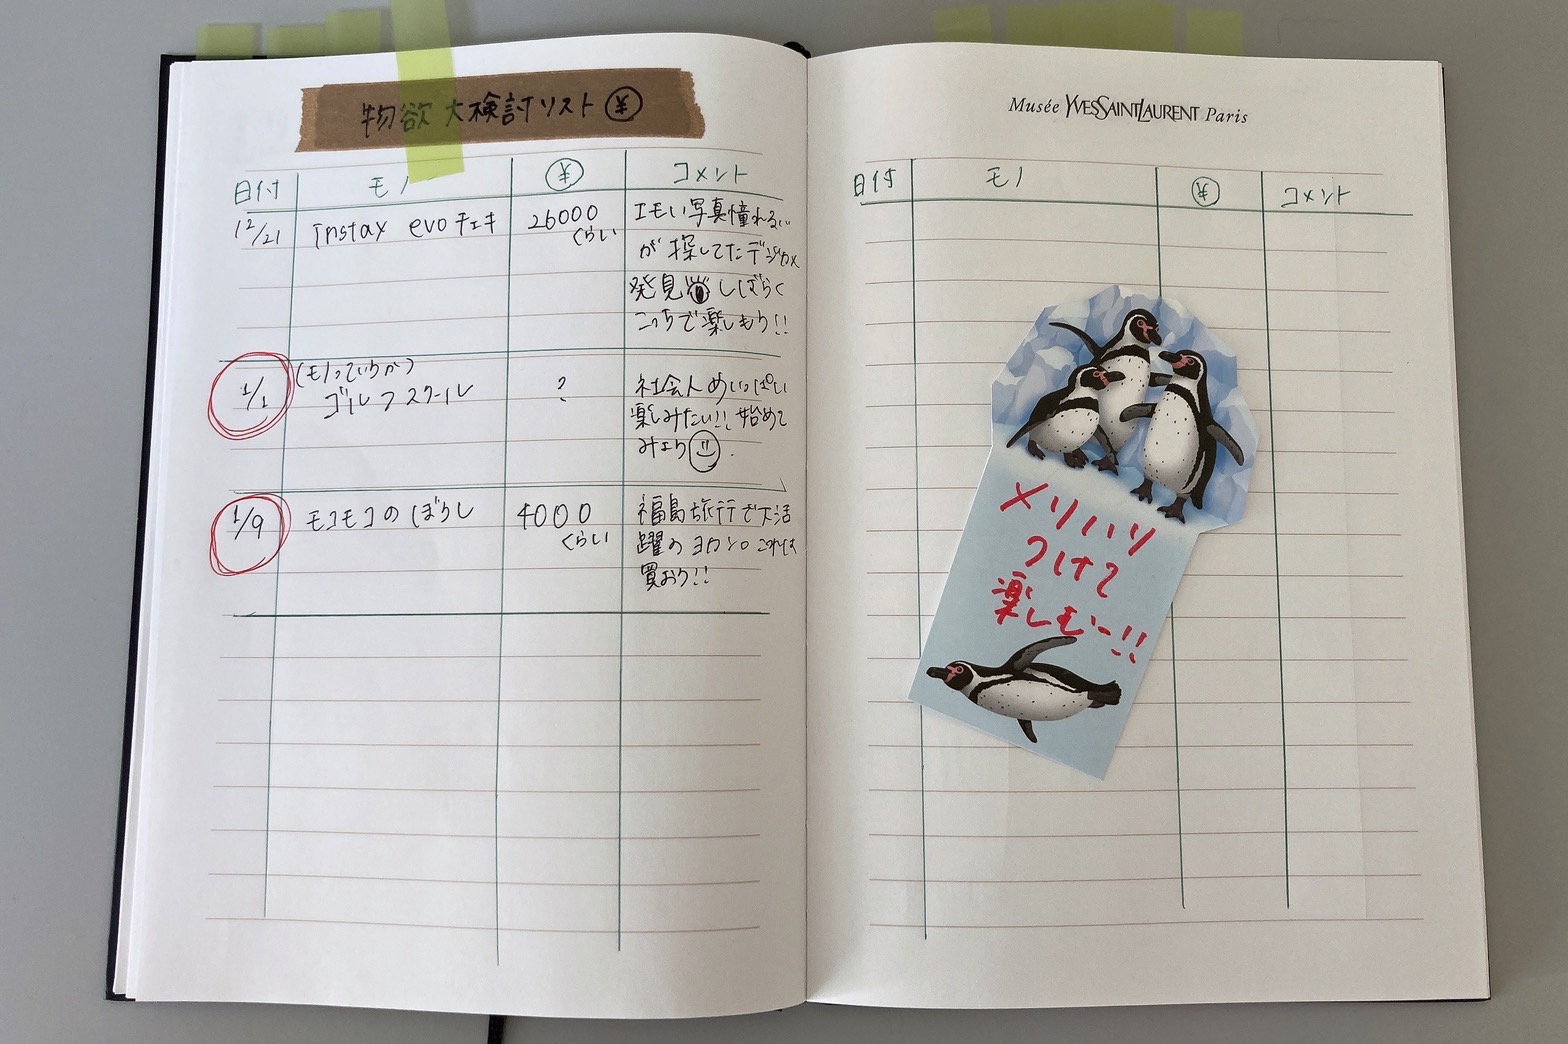 物欲 大検討リスト ¥
日付 モノ ¥ コメント
12/21 Instax evo チェキ 26000 くらい
エモい写真憧れるい
が 探してたデジカメ
発見 しばらく
こっちで楽しもう!!
1/1 (モノっていうか) ゴルフスクール ?
社会人めいっぱい
楽しみたい!! 始めて
みよう
1/9 モコモコのぼうし 4000 くらい
福島旅行で大活
躍のヨカン。これは
買おう!!
Musée YVESSAINTLAURENT Paris
日付 モノ ¥ コメント
メリハリ
つけて
楽しむー!!